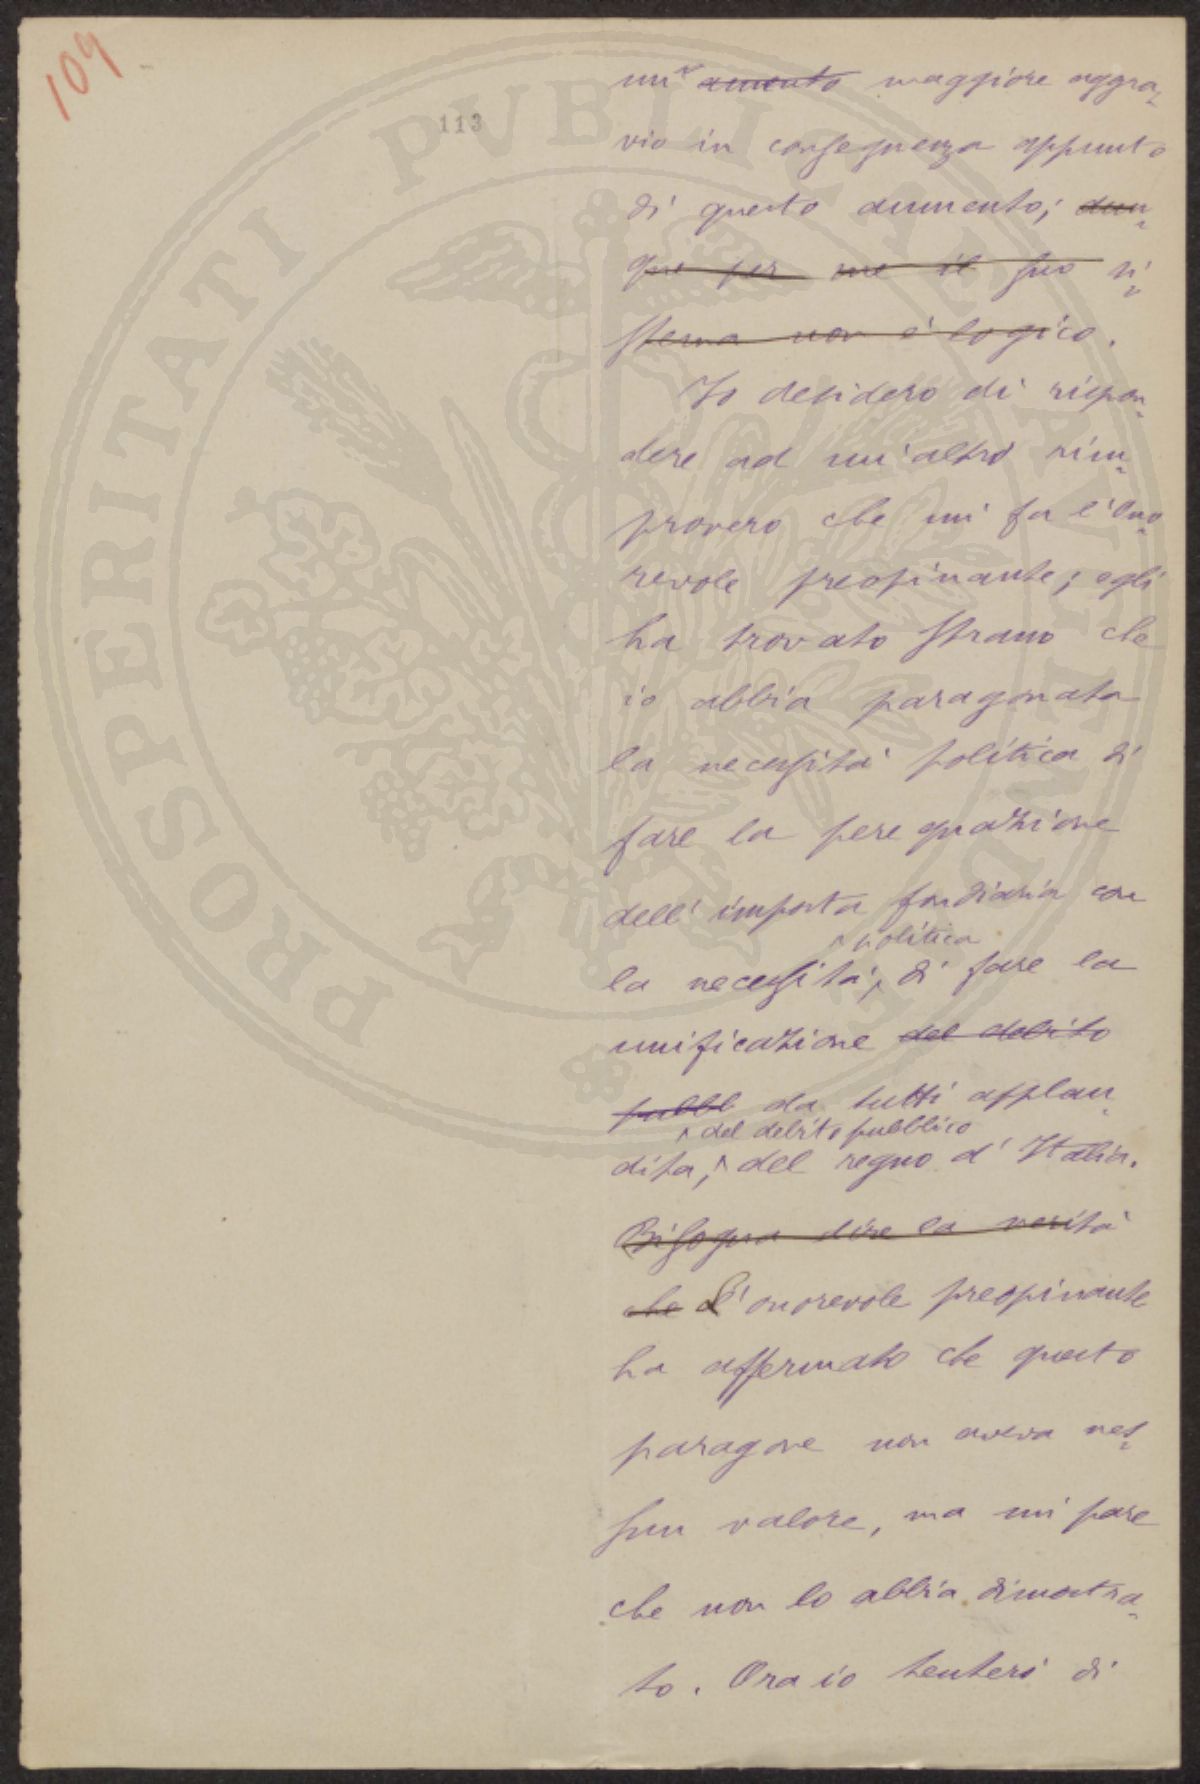 109
113
un ~~aumento~~ maggiore aggra-
vio in conseguenza appunto
di questo aumento; ~~dun-~~
~~que per me il suo si-~~
~~stema non è logico.~~
Io desidero di rispon-
dere ad un'altro rim-
provero che mi fa l'Ono-
revole preopinante; egli
ha trovato strano che
io abbia paragonata
la necessità politica di
fare la perequazione
dell'imposta fondiaria con
la necessità, politica di fare la
unificazione ~~del debito~~
~~pubbl~~ da tutti applau-
dita, del debito pubblico del regno d'Italia.
~~Bisogna dire la verità~~
~~che~~ L'onorevole preopinante
ha affermato che questo
paragone non aveva nes-
sun valore, ma mi pare
che non lo abbia dimostra-
to. Ora io tenterò di
PROSPERITATI PVBLICAE